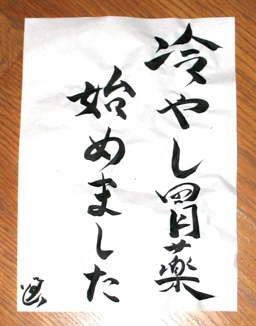 冷やし胃薬
始めました